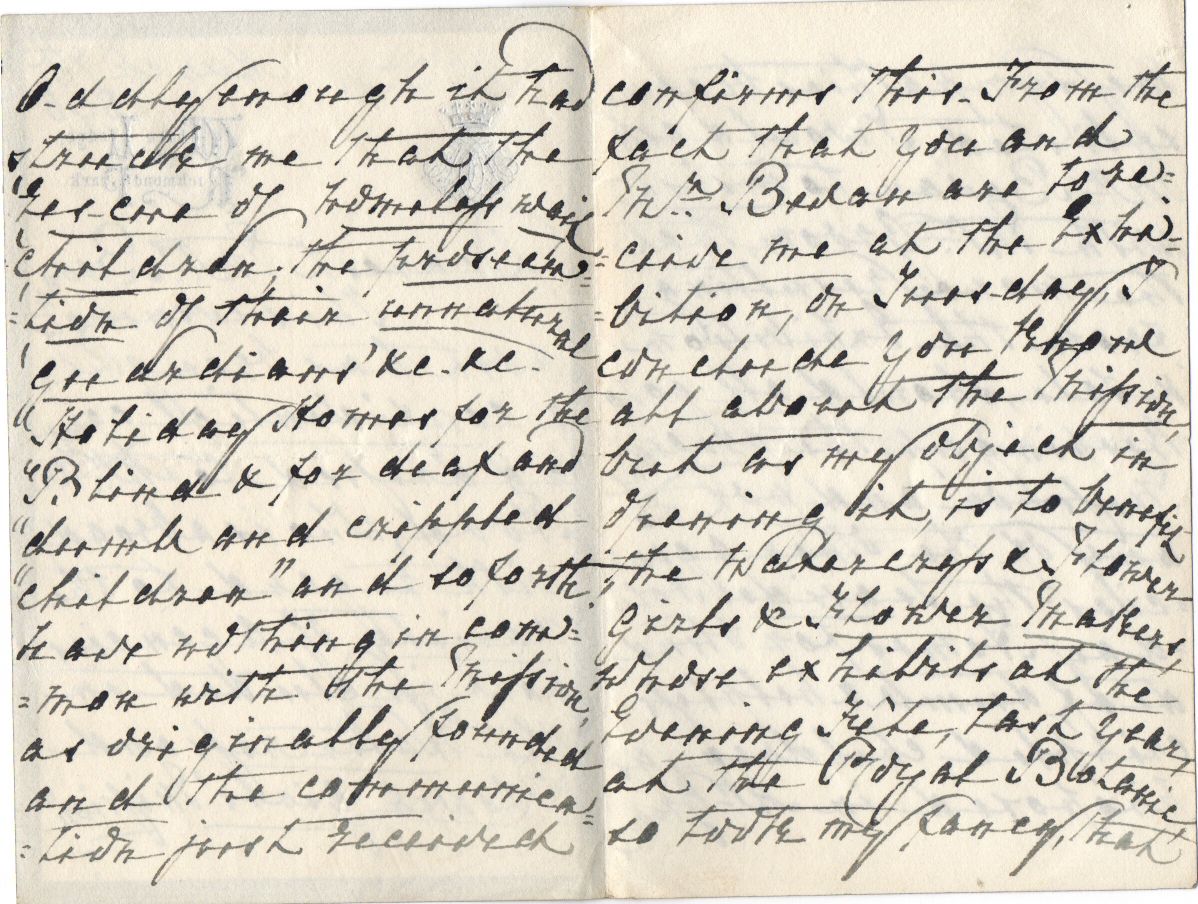 Oddly enough it had
struck me that the
"Rescue of homeless waif
"children; the prosecu=
=tion of their unnatural
"guardians" &c. &c.
"Holiday Homes for the
"Blind & for deaf and
"dumb and crippled
"children" and so forth
have nothing in com=
=mon with the Mission,
as originally founded
and the communica=
=tion just received
confirms this. From the
fact that you and
Mrs. Bevan are to re=
=ceive me at the Exhi=
=bition, on Tuesday, I
conclude you know
all about the Mission,
but as my object in
opening it, is to benefit
the Watercress & Flower
Girls & Flower Makers
whose exhibits at the
Evening Fête, last year
at the Royal Botanic
so took my fancy, that